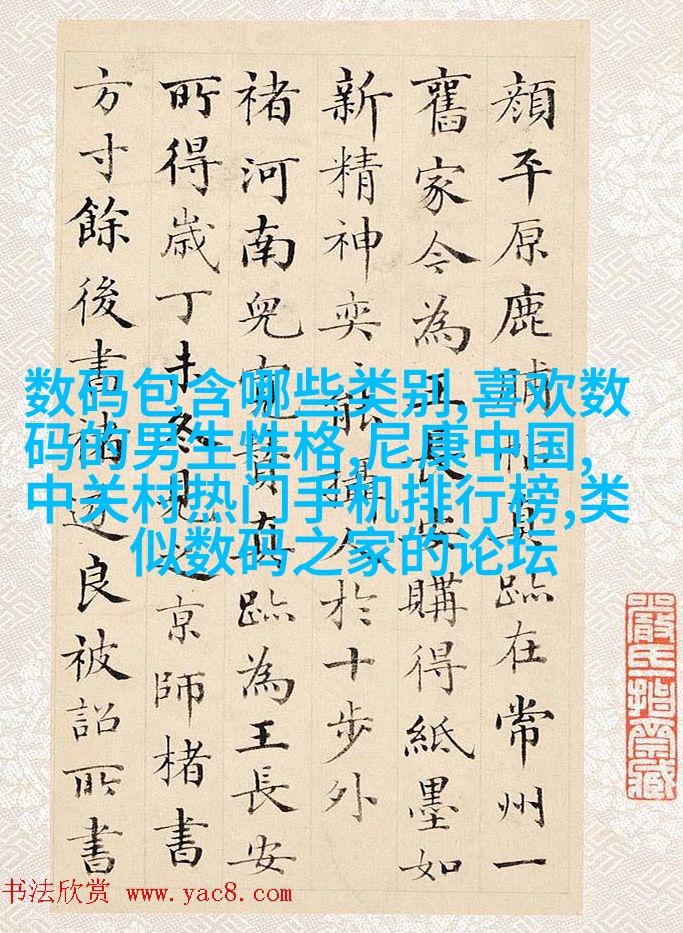 顔平原鹿脯帖真跡在常州一
舊家今為王長安購得紙墨如
新精神奕能攝人於十步外
褚河南兒寬贊真跡為王長安
所得歲丁未冬見京師楮書
方寸餘後書褚遂良被詔所書
数码包含哪些类别,喜欢数
码的男生性格,尼康中国,
中关村热门手机排行榜,类
似数码之家的论坛
书法欣赏 www.yac8.com